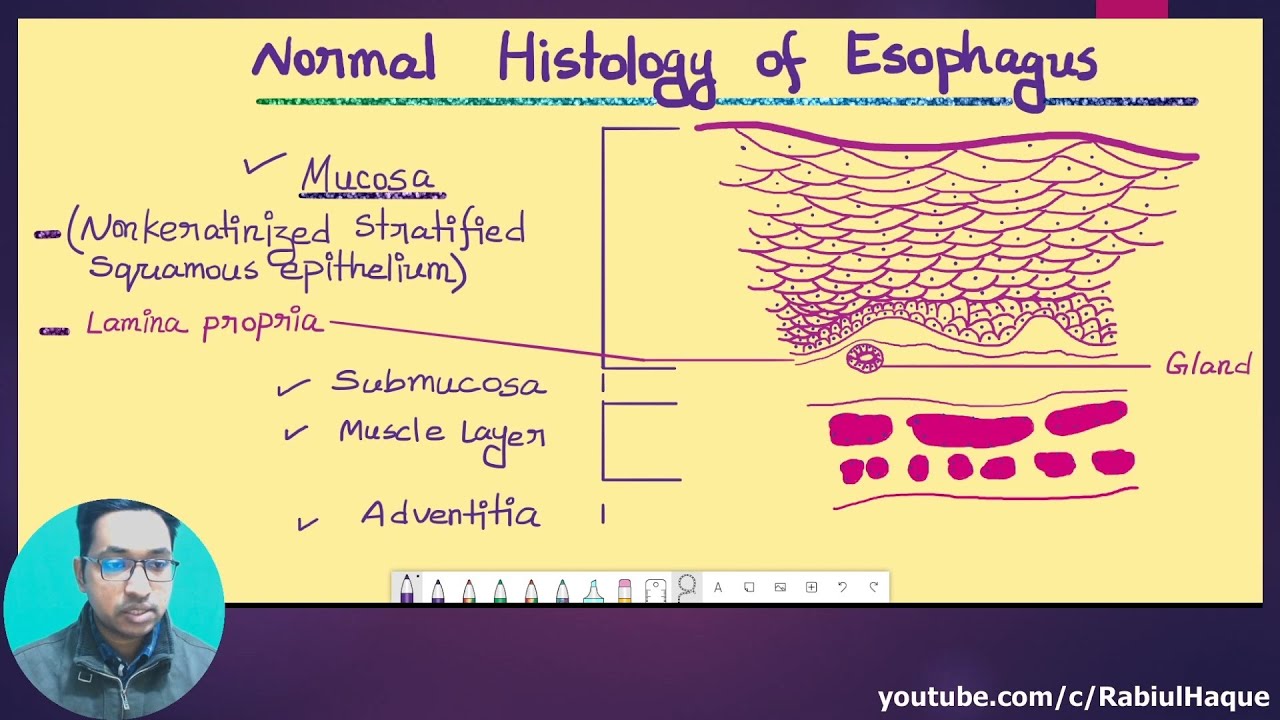 Normal Histology of Esophagus
Mucosa
(Nonkeratinized Stratified
Squamous epithelium)
Lamina propria
Submucosa
Muscle Layer
Adventitia
Gland
A
youtube.com/c/RabiulHaque